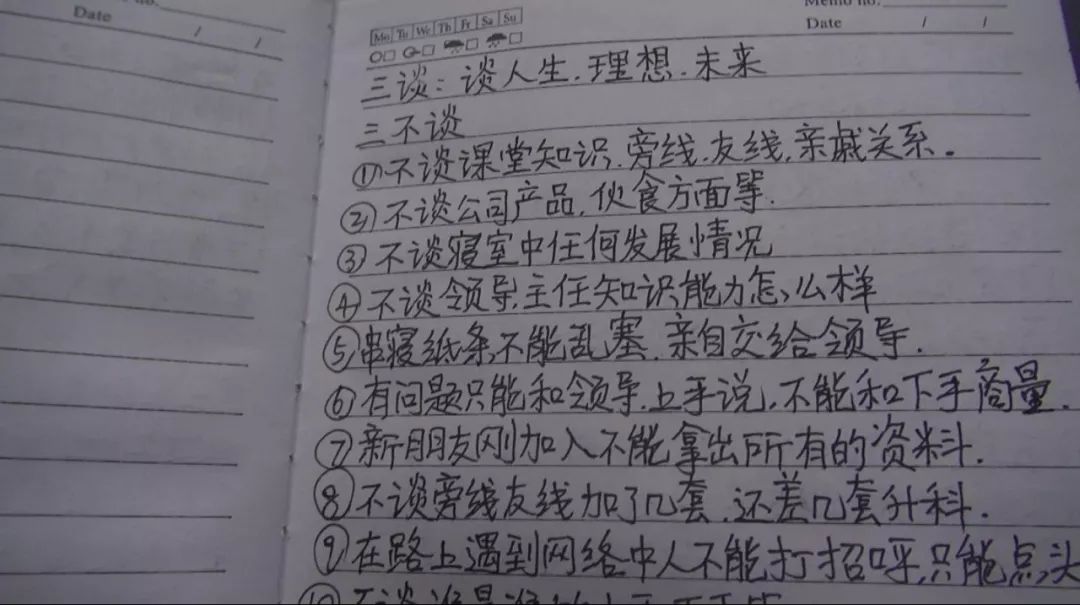 Date / /
Memo no.
Date / /
Mo Tu We Th Fr Sa Su
三谈：谈人生.理想.未来
三不谈
①不谈课堂知识.旁线.友线.亲戚关系.
②不谈公司产品.伙食方面等.
③不谈寝室中任何发展情况
④不谈领导.主任知识能力怎么样
⑤串寝纸条不能乱塞.亲自交给领导.
⑥有问题只能和领导.上手说,不能和下手商量.
⑦新朋友刚加入不能拿出所有的资料.
⑧不谈旁线友线加了几套.还差几套升科.
⑨在路上遇到网络中人不能打招呼,只能点头
⑩不谈谁是谁的